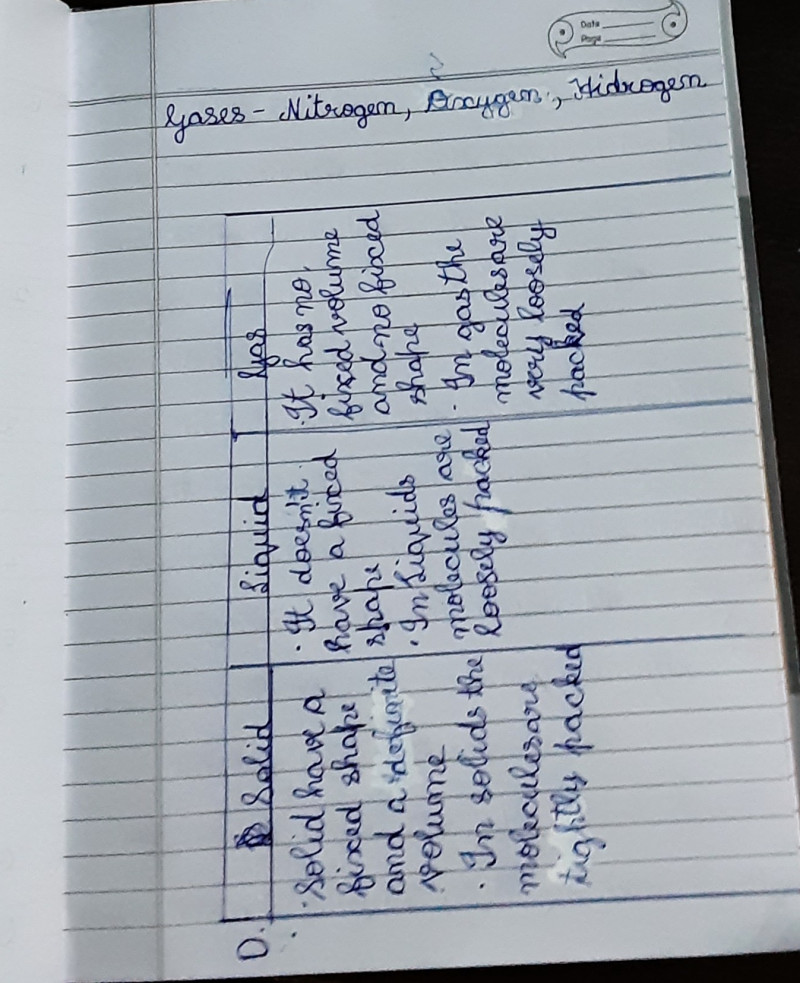 Date
Page
Gases - Nitrogen, Oxygen, Hidrogen
D.
Solid
Liquid
Gas
· Solid have a
fixed shape
and a definite
volume
· In solids the
moleculesare
tightly packed
· It doesn't
have a fixed
shape
· In Liquids
molecules are
loosely packed
· It has no,
fixed volume
and no fixed
shape
· In gas the
moleculesare
very loosely
packed